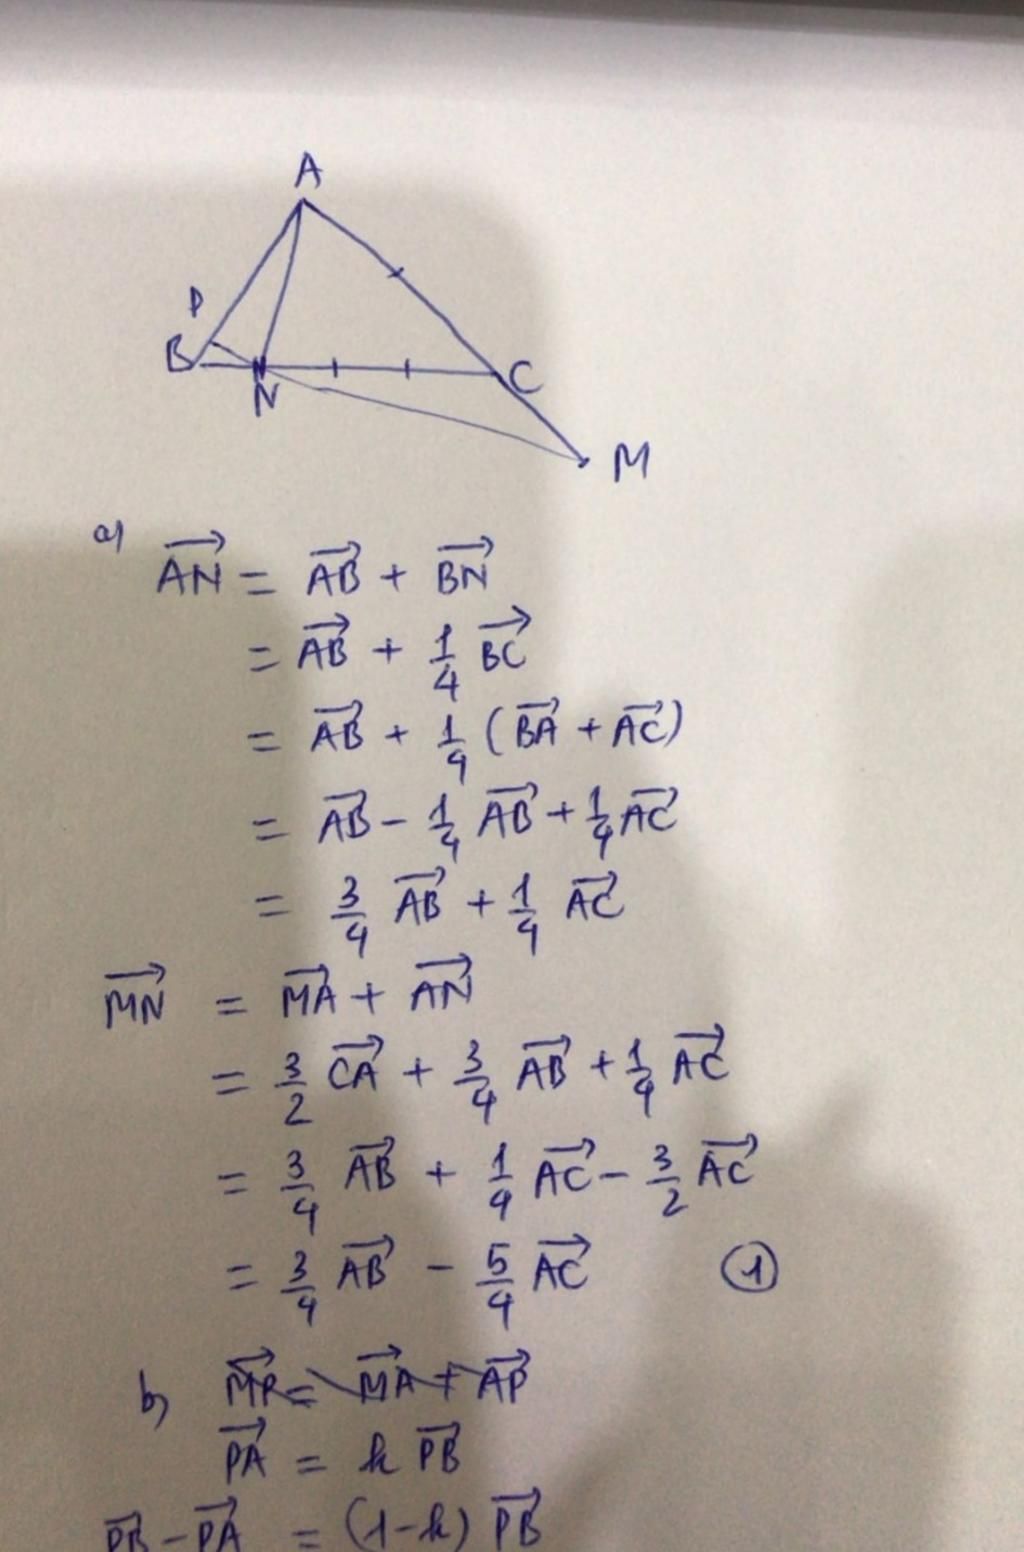 A
P
B
N
C
M
a) $\overrightarrow{AN} = \overrightarrow{AB} + \overrightarrow{BN}$
$= \overrightarrow{AB} + \frac{1}{4} \overrightarrow{BC}$
$= \overrightarrow{AB} + \frac{1}{4} (\overrightarrow{BA} + \overrightarrow{AC})$
$= \overrightarrow{AB} - \frac{1}{4} \overrightarrow{AB} + \frac{1}{4} \overrightarrow{AC}$
$= \frac{3}{4} \overrightarrow{AB} + \frac{1}{4} \overrightarrow{AC}$
$\overrightarrow{MN} = \overrightarrow{MA} + \overrightarrow{AN}$
$= \frac{3}{2} \overrightarrow{CA} + \frac{3}{4} \overrightarrow{AB} + \frac{1}{4} \overrightarrow{AC}$
$= \frac{3}{4} \overrightarrow{AB} + \frac{1}{4} \overrightarrow{AC} - \frac{3}{2} \overrightarrow{AC}$
$= \frac{3}{4} \overrightarrow{AB} - \frac{5}{4} \overrightarrow{AC}$ ①
b) $\overrightarrow{MP} = \overrightarrow{MA} + \overrightarrow{AP}$
$\overrightarrow{PA} = k \overrightarrow{PB}$
$\overrightarrow{PB} - \overrightarrow{PA} = (1-k) \overrightarrow{PB}$